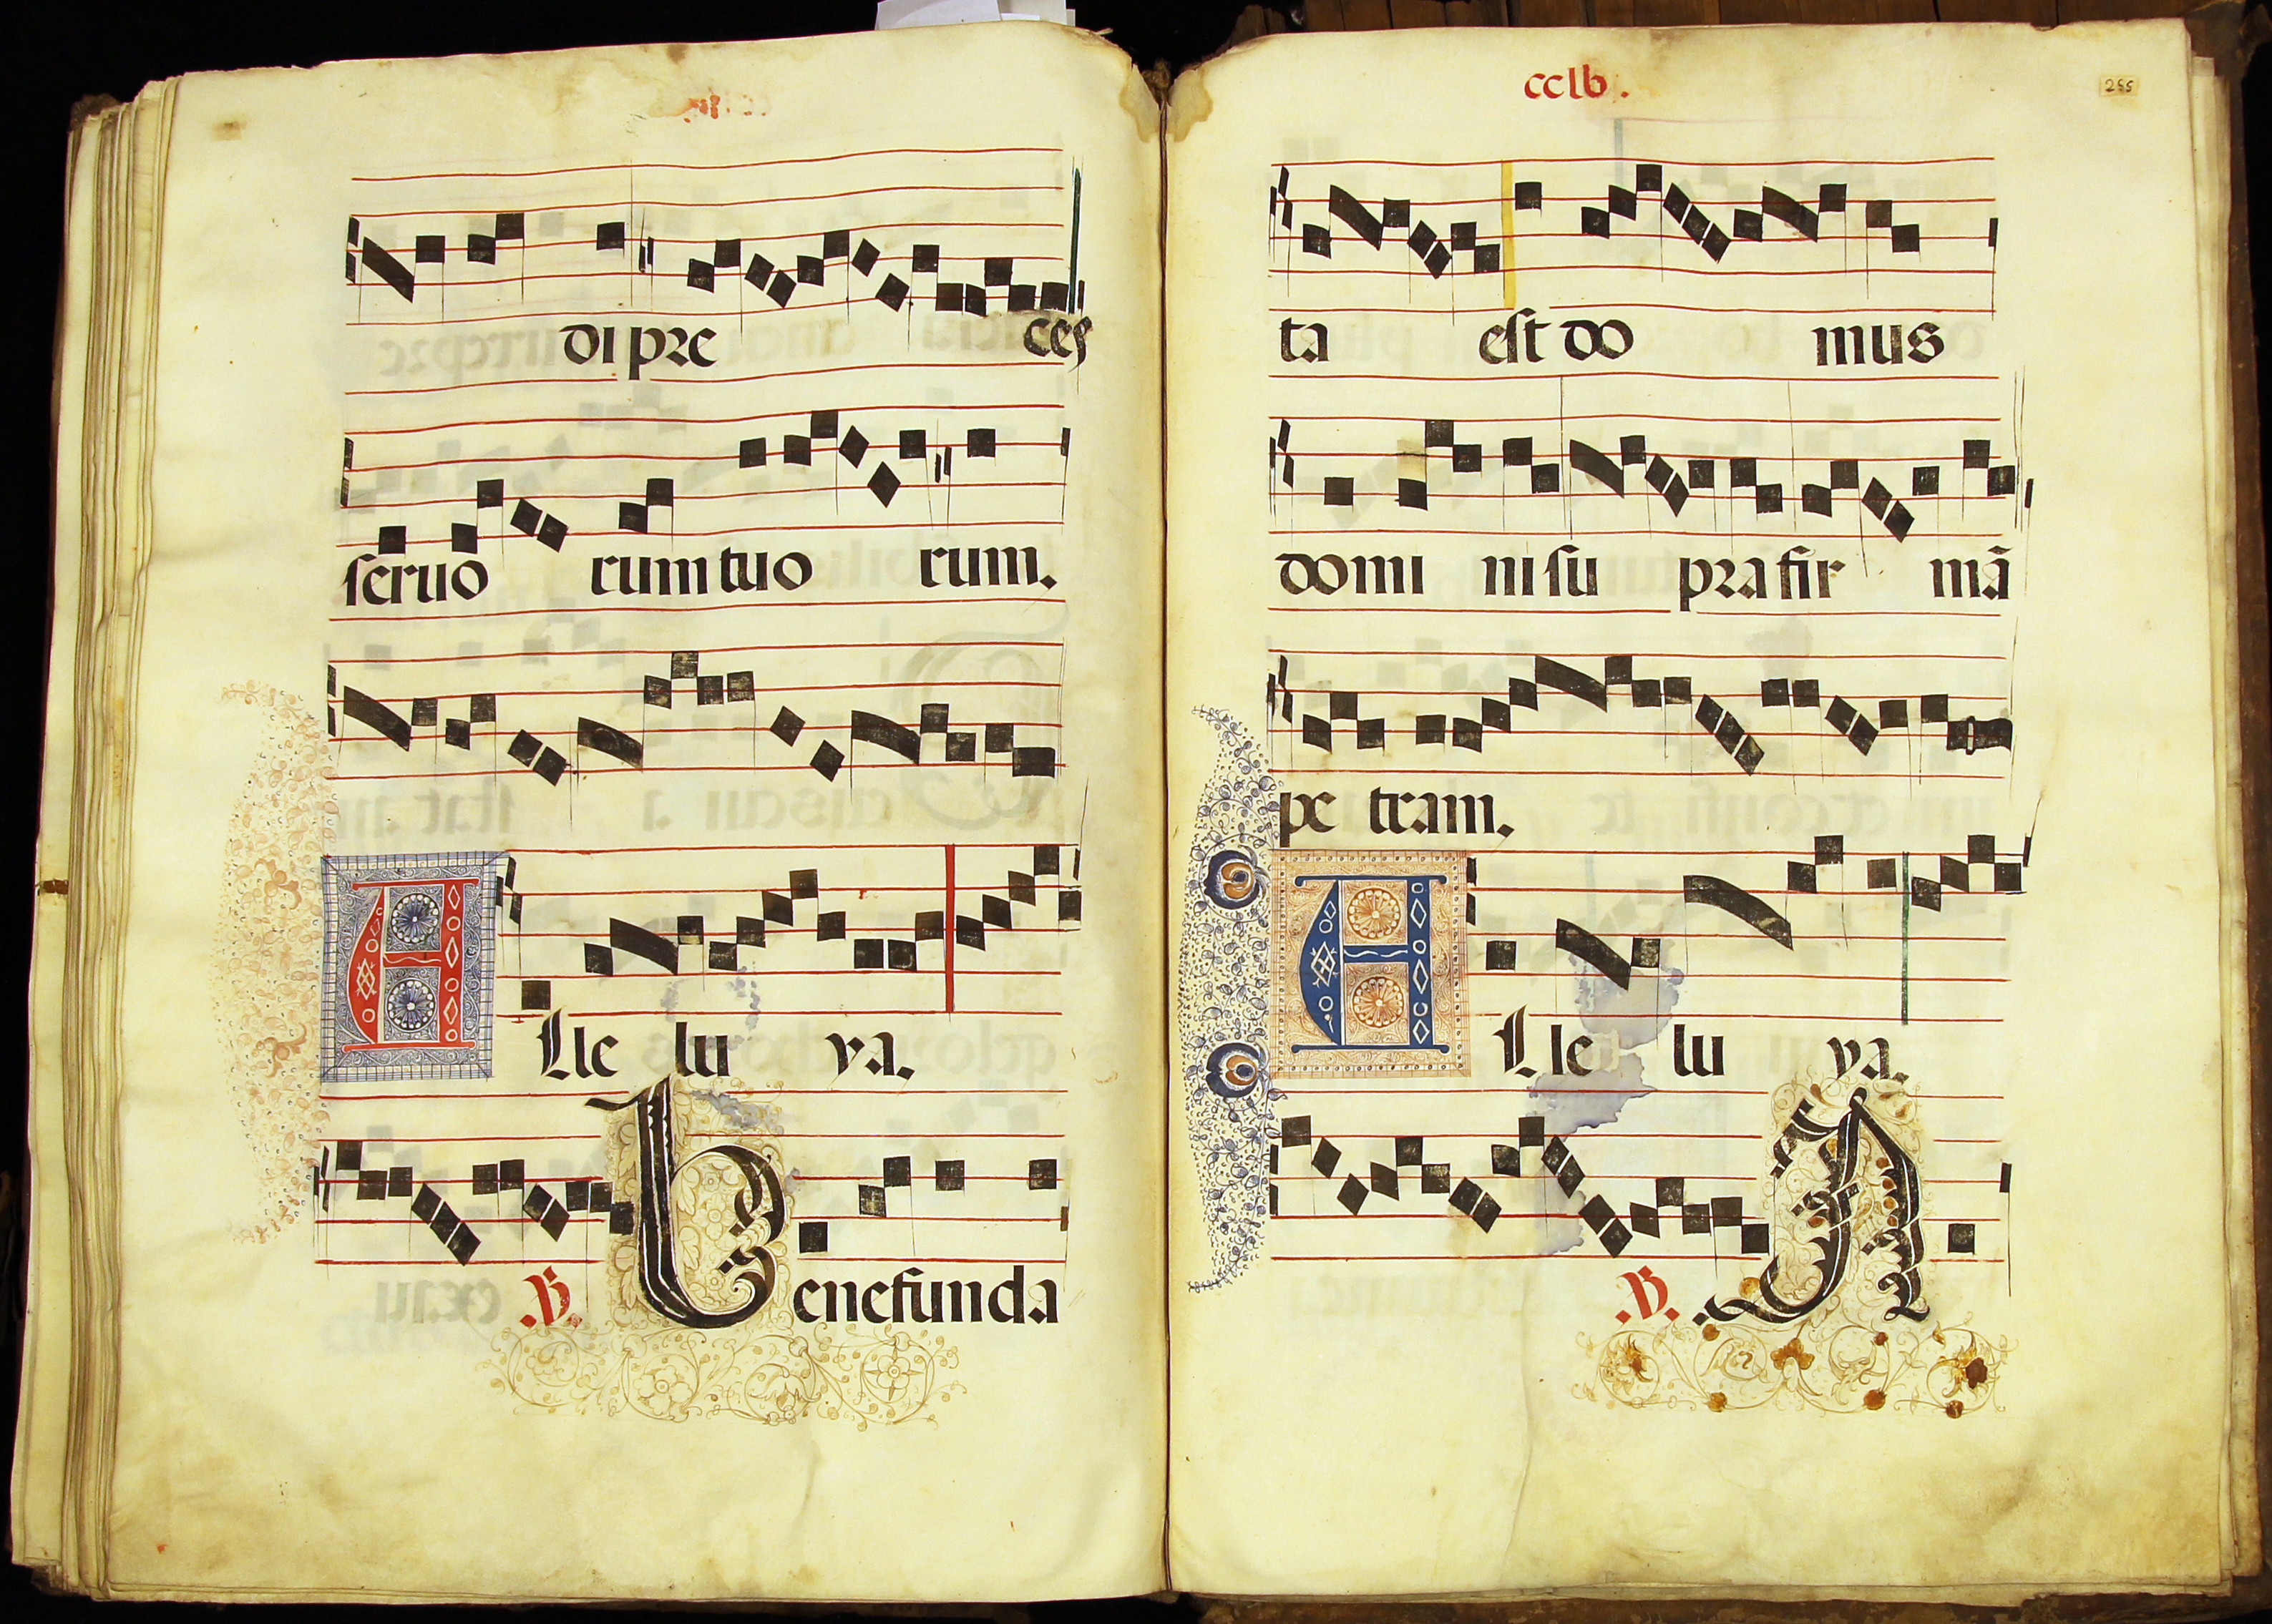 di pre ces
seruo rum tuo rum.
A Lle lu ya.
.V. B enefunda
cclv.
255
ta est do mus
domi ni su pra fir mã
pe tram.
A Lle lu ya.
.V. A